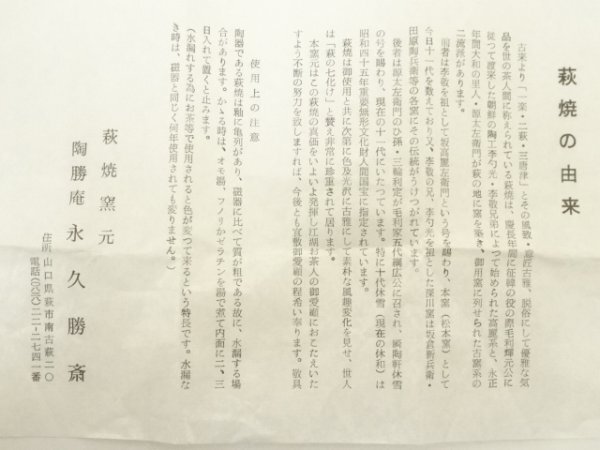 萩焼の由来
古来より「一楽・二萩・三唐津」とその風致・意匠古雅、脱俗にして優雅な気
品を世の茶人間に称えられている萩焼は、慶長年間に征韓の役の際毛利輝元公に
従つて渡来した朝鮮の陶工李勺光・李敬兄弟によつて始められた高麗茶と、永正
年間大和の里人・源太左衛門が萩の地に窯を築き、御用窯に列せられた古窯系の
二流派があります。
前者は李敬を祖として坂高麗左衛門という号を賜わり、本窯(松本窯)として
今日十一代を数えており又、李敬の兄、李勺光を祖とした深川窯は坂倉新兵衛・
田原陶兵衛等の各窯にその伝統がうけつがれています。
後者は源太左衛門のひ孫・三輪利定が毛利家五代綱広公に召され、瞬陶軒休雪
の号を賜わり、現在の十一代にいたつています。特に十代休雪(現在の休和)は
昭和四十五年重要無形文化財人間国宝に指定されています。
萩焼は御使用と共に次第に色及光沢に古雅にして素朴な風趣変化を見せ、世人
は「萩の七化け」と賛え非常に珍重されて居ります。
本窯元はこの萩焼の真価をいよいよ発揮し江湖お茶人の御愛顧におこたえいた
すよう不断の努力を致しますれば、今後とも宜敷御愛顧の程希い奉ります。敬具
使用上の注意
陶器である萩焼は釉に亀列があり、磁器に比べて質が粗である故に、水漏する場
合があります。かゝる時は、オモ湯、フノリかゼラチンを湯で煮て内面に二、三
日入れて置くと止みます。
(水漏れする為にお茶等で使用されると色が変つて来るという特長です。水漏な
き時は、磁器と同じく何年使用されても変りません。)
萩焼窯元
陶勝庵 永久勝斎
住所 山口県萩市南古萩二〇
電話(〇八三八二)二-二七四一番